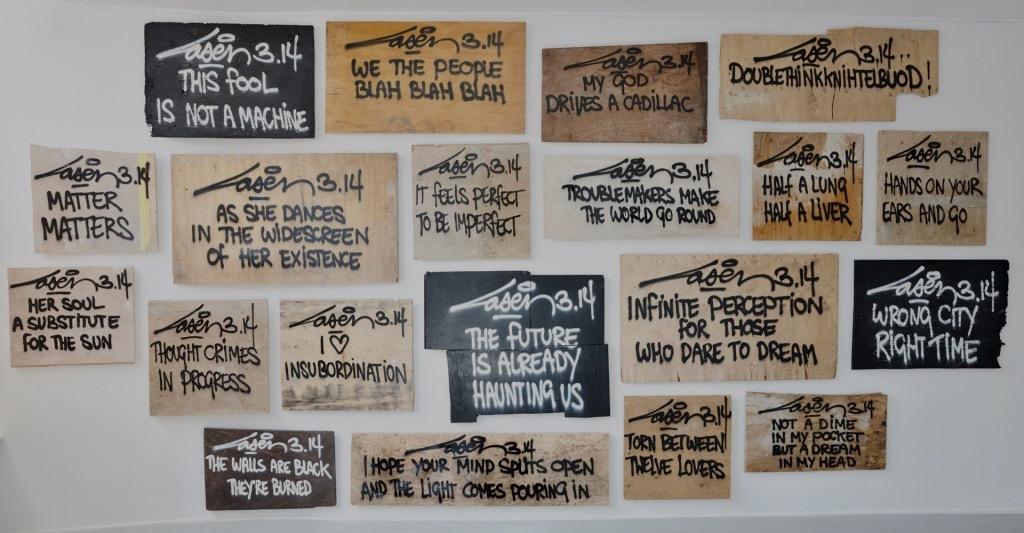 Laser 3.14
THIS FOOL
IS NOT A MACHINE
Laser 3.14
WE THE PEOPLE
BLAH BLAH BLAH
Laser 3.14
MY GOD
DRIVES A CADILLAC
Laser 3.14..
DOUBLETHINKKNIHTELBUOD!
Laser 3.14
MATTER
MATTERS
Laser 3.14
AS SHE DANCES
IN THE WIDESCREEN
OF HER EXISTENCE
Laser 3.14
IT FEELS PERFECT
TO BE IMPERFECT
Laser 3.14
TROUBLEMAKERS MAKE
THE WORLD GO ROUND
Laser 3.14
HALF A LUNG
HALF A LIVER
Laser 3.14
HANDS ON YOUR
EARS AND GO
Laser 3.14
HER SOUL
A SUBSTITUTE
FOR THE SUN
Laser 3.14
THOUGHT CRIMES
IN PROGRESS
Laser 3.14
I ♡
INSUBORDINATION
Laser 3.14
THE FUTURE
IS ALREADY
HAUNTING US
Laser 3.14
INFINITE PERCEPTION
FOR THOSE
WHO DARE TO DREAM
Laser 3.14
WRONG CITY
RIGHT TIME
Laser 3.14
THE WALLS ARE BLACK
THEY'RE BURNED
Laser 3.14
I HOPE YOUR MIND SPLITS OPEN
AND THE LIGHT COMES POURING IN
Laser 3.14
TORN BETWEEN
TWELVE LOVERS
Laser 3.14
NOT A DIME
IN MY POCKET
BUT A DREAM
IN MY HEAD